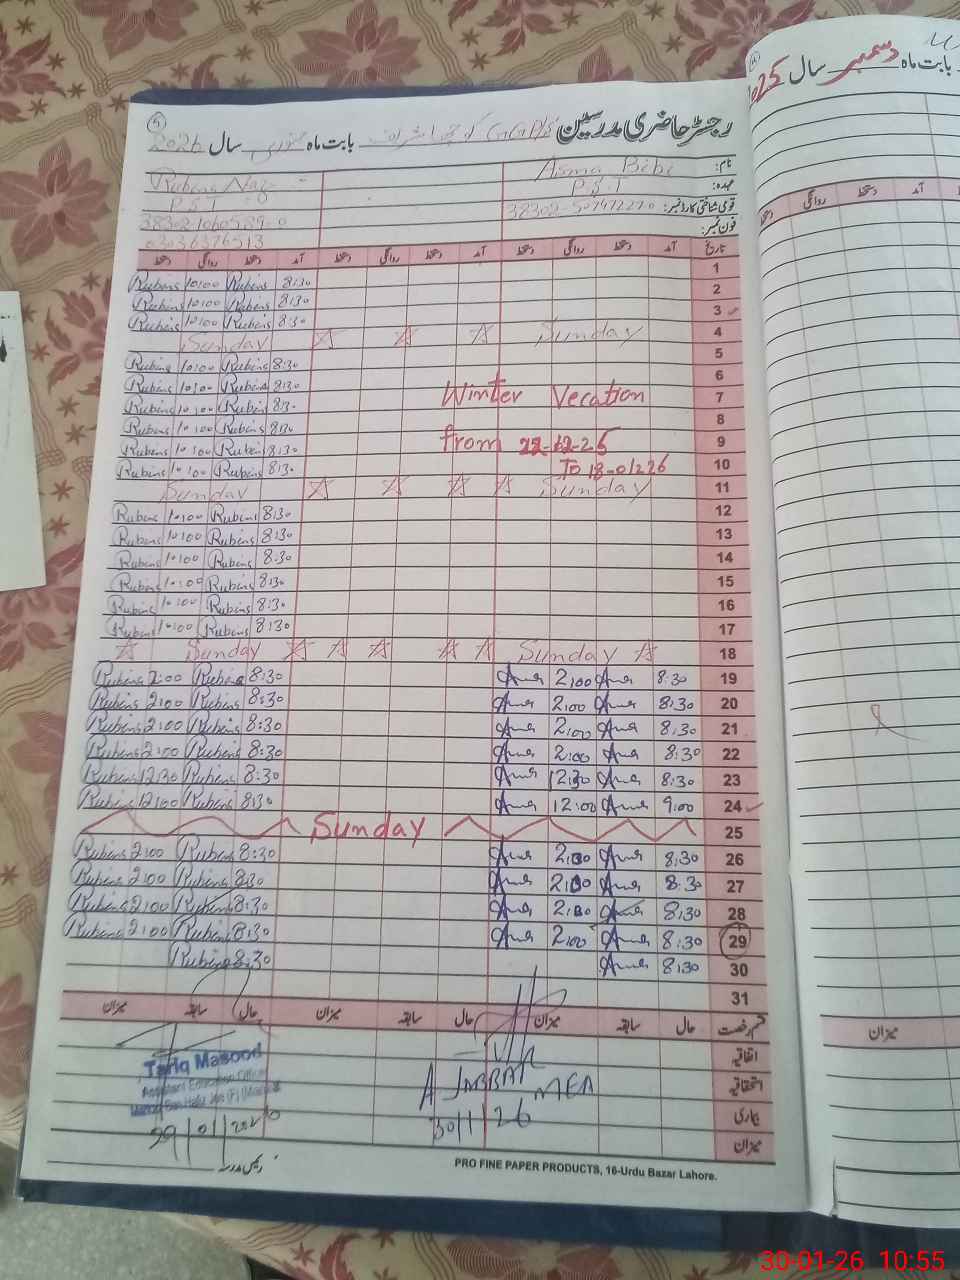 رجسٹر حاضری مدرسین GGPS بابت ماہ جنوری سال 2026
نام: Asma Bibi Rubina Naz
عہدہ: P.S.T P.S.T
قومی شناختی کارڈ نمبر: 38302-
فون نمبر: 03036376513
تاریخ آمد دستخط روانگی دستخط آمد دستخط روانگی دستخط
1
2 Rubina 10:00 Rubina 8:30
3 Rubina 10:00 Rubina 8:30
4 Rubina 10:00 Rubina 8:30
Sunday Sunday
5 Rubina 10:00 Rubina 8:30
6 Rubina 10:00 Rubina 8:30
7 Rubina 10:00 Rubina 8:30 Winter Vecation
8 Rubina 10:00 Rubina 8:30
9 Rubina 10:00 Rubina 8:30 from 22-12-25
10 Rubina 10:00 Rubina 8:30 To 18-01-226
11 Sunday Sunday
12 Rubina 10:00 Rubina 8:30
13 Rubina 10:00 Rubina 8:30
14 Rubina 10:00 Rubina 8:30
15 Rubina 10:00 Rubina 8:30
16 Rubina 10:00 Rubina 8:30
17 Rubina 10:00 Rubina 8:30
18 Sunday Sunday
19 Rubina 2:00 Rubina 8:30 Asma 2:00 Asma 8:30
20 Rubina 2:00 Rubina 8:30 Asma 2:00 Asma 8:30
21 Rubina 2:00 Rubina 8:30 Asma 2:00 Asma 8:30
22 Rubina 2:00 Rubina 8:30 Asma 2:00 Asma 8:30
23 Rubina 12:30 Rubina 8:30 Asma 12:30 Asma 8:30
24 Rubina 12:00 Rubina 8:30 Asma 12:00 Asma 9:00
25 Sunday
26 Rubina 2:00 Rubina 8:30 Asma 2:00 Asma 8:30
27 Rubina 2:00 Rubina 8:30 Asma 2:00 Asma 8:30
28 Rubina 2:00 Rubina 8:30 Asma 2:00 Asma 8:30
29 Rubina 2:00 Rubina 8:30 Asma 2:00 Asma 8:30
30 Rubina 8:30 Asma 8:30
31
قسم رخصت حال سابقہ میزان حال سابقہ میزان حال سابقہ میزان
اتفاقیہ
استحقاقیہ
بیماری
میزان
Tariq Masood
Assistant Education Officer
29/01/2026
A JABBAR MEA
30/1/26
رئیس مدرسہ
PRO FINE PAPER PRODUCTS, 16-Urdu Bazar Lahore.
بابت ماہ دسمبر سال 2025
آمد دستخط روانگی دستخط
میزان
30-01-26 10:55